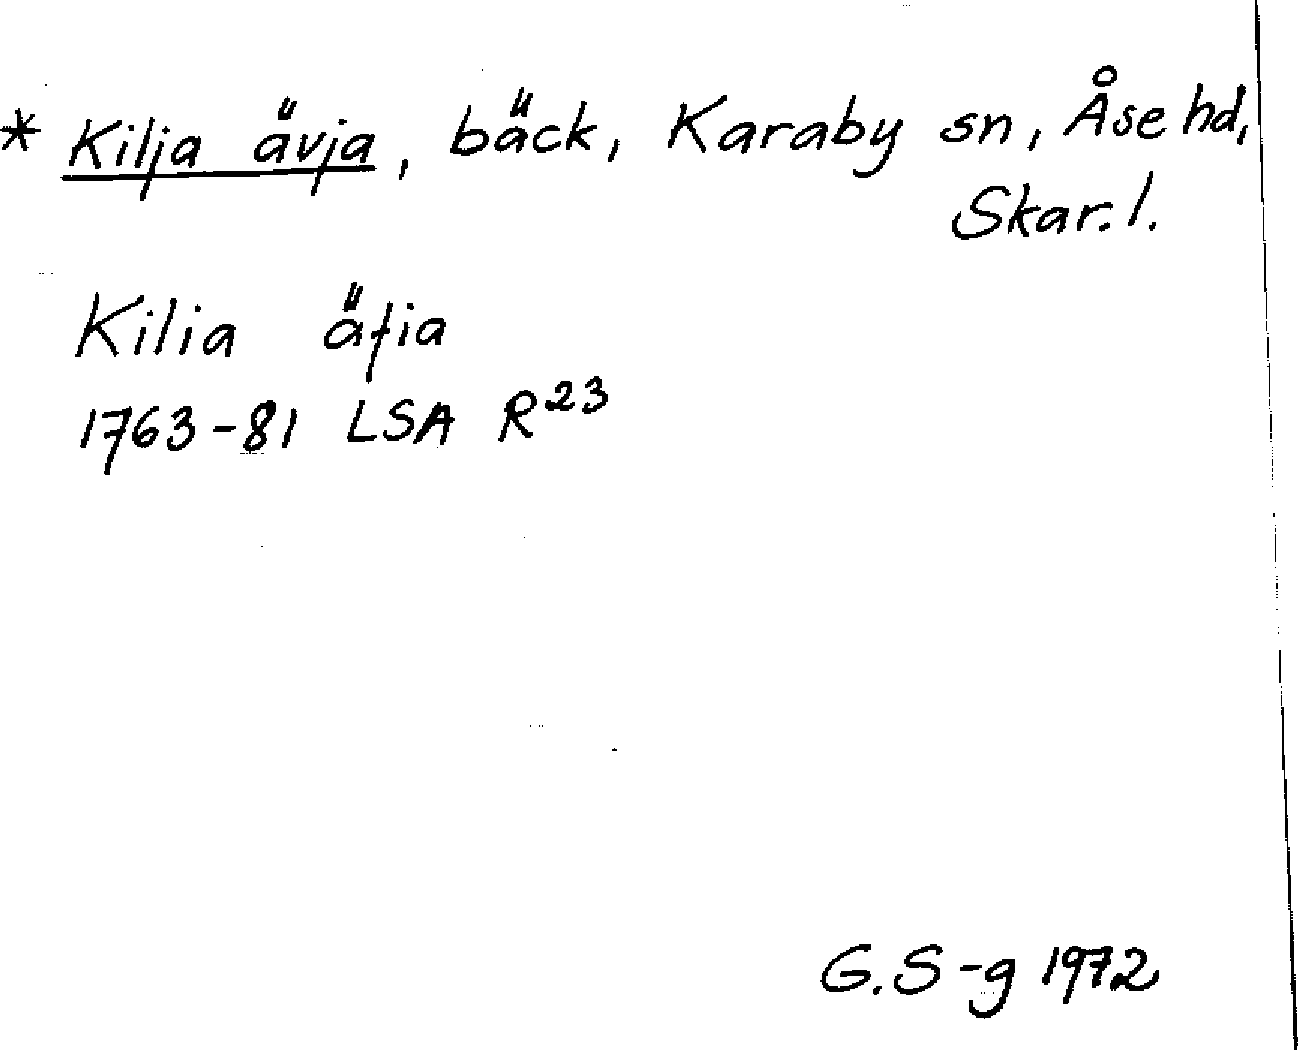 * Kilja ävja, bäck, Karaby sn, Åse hd,
Skar. l.
Kilia äfia
1763-81 LSA R²³
G.S-g 1972